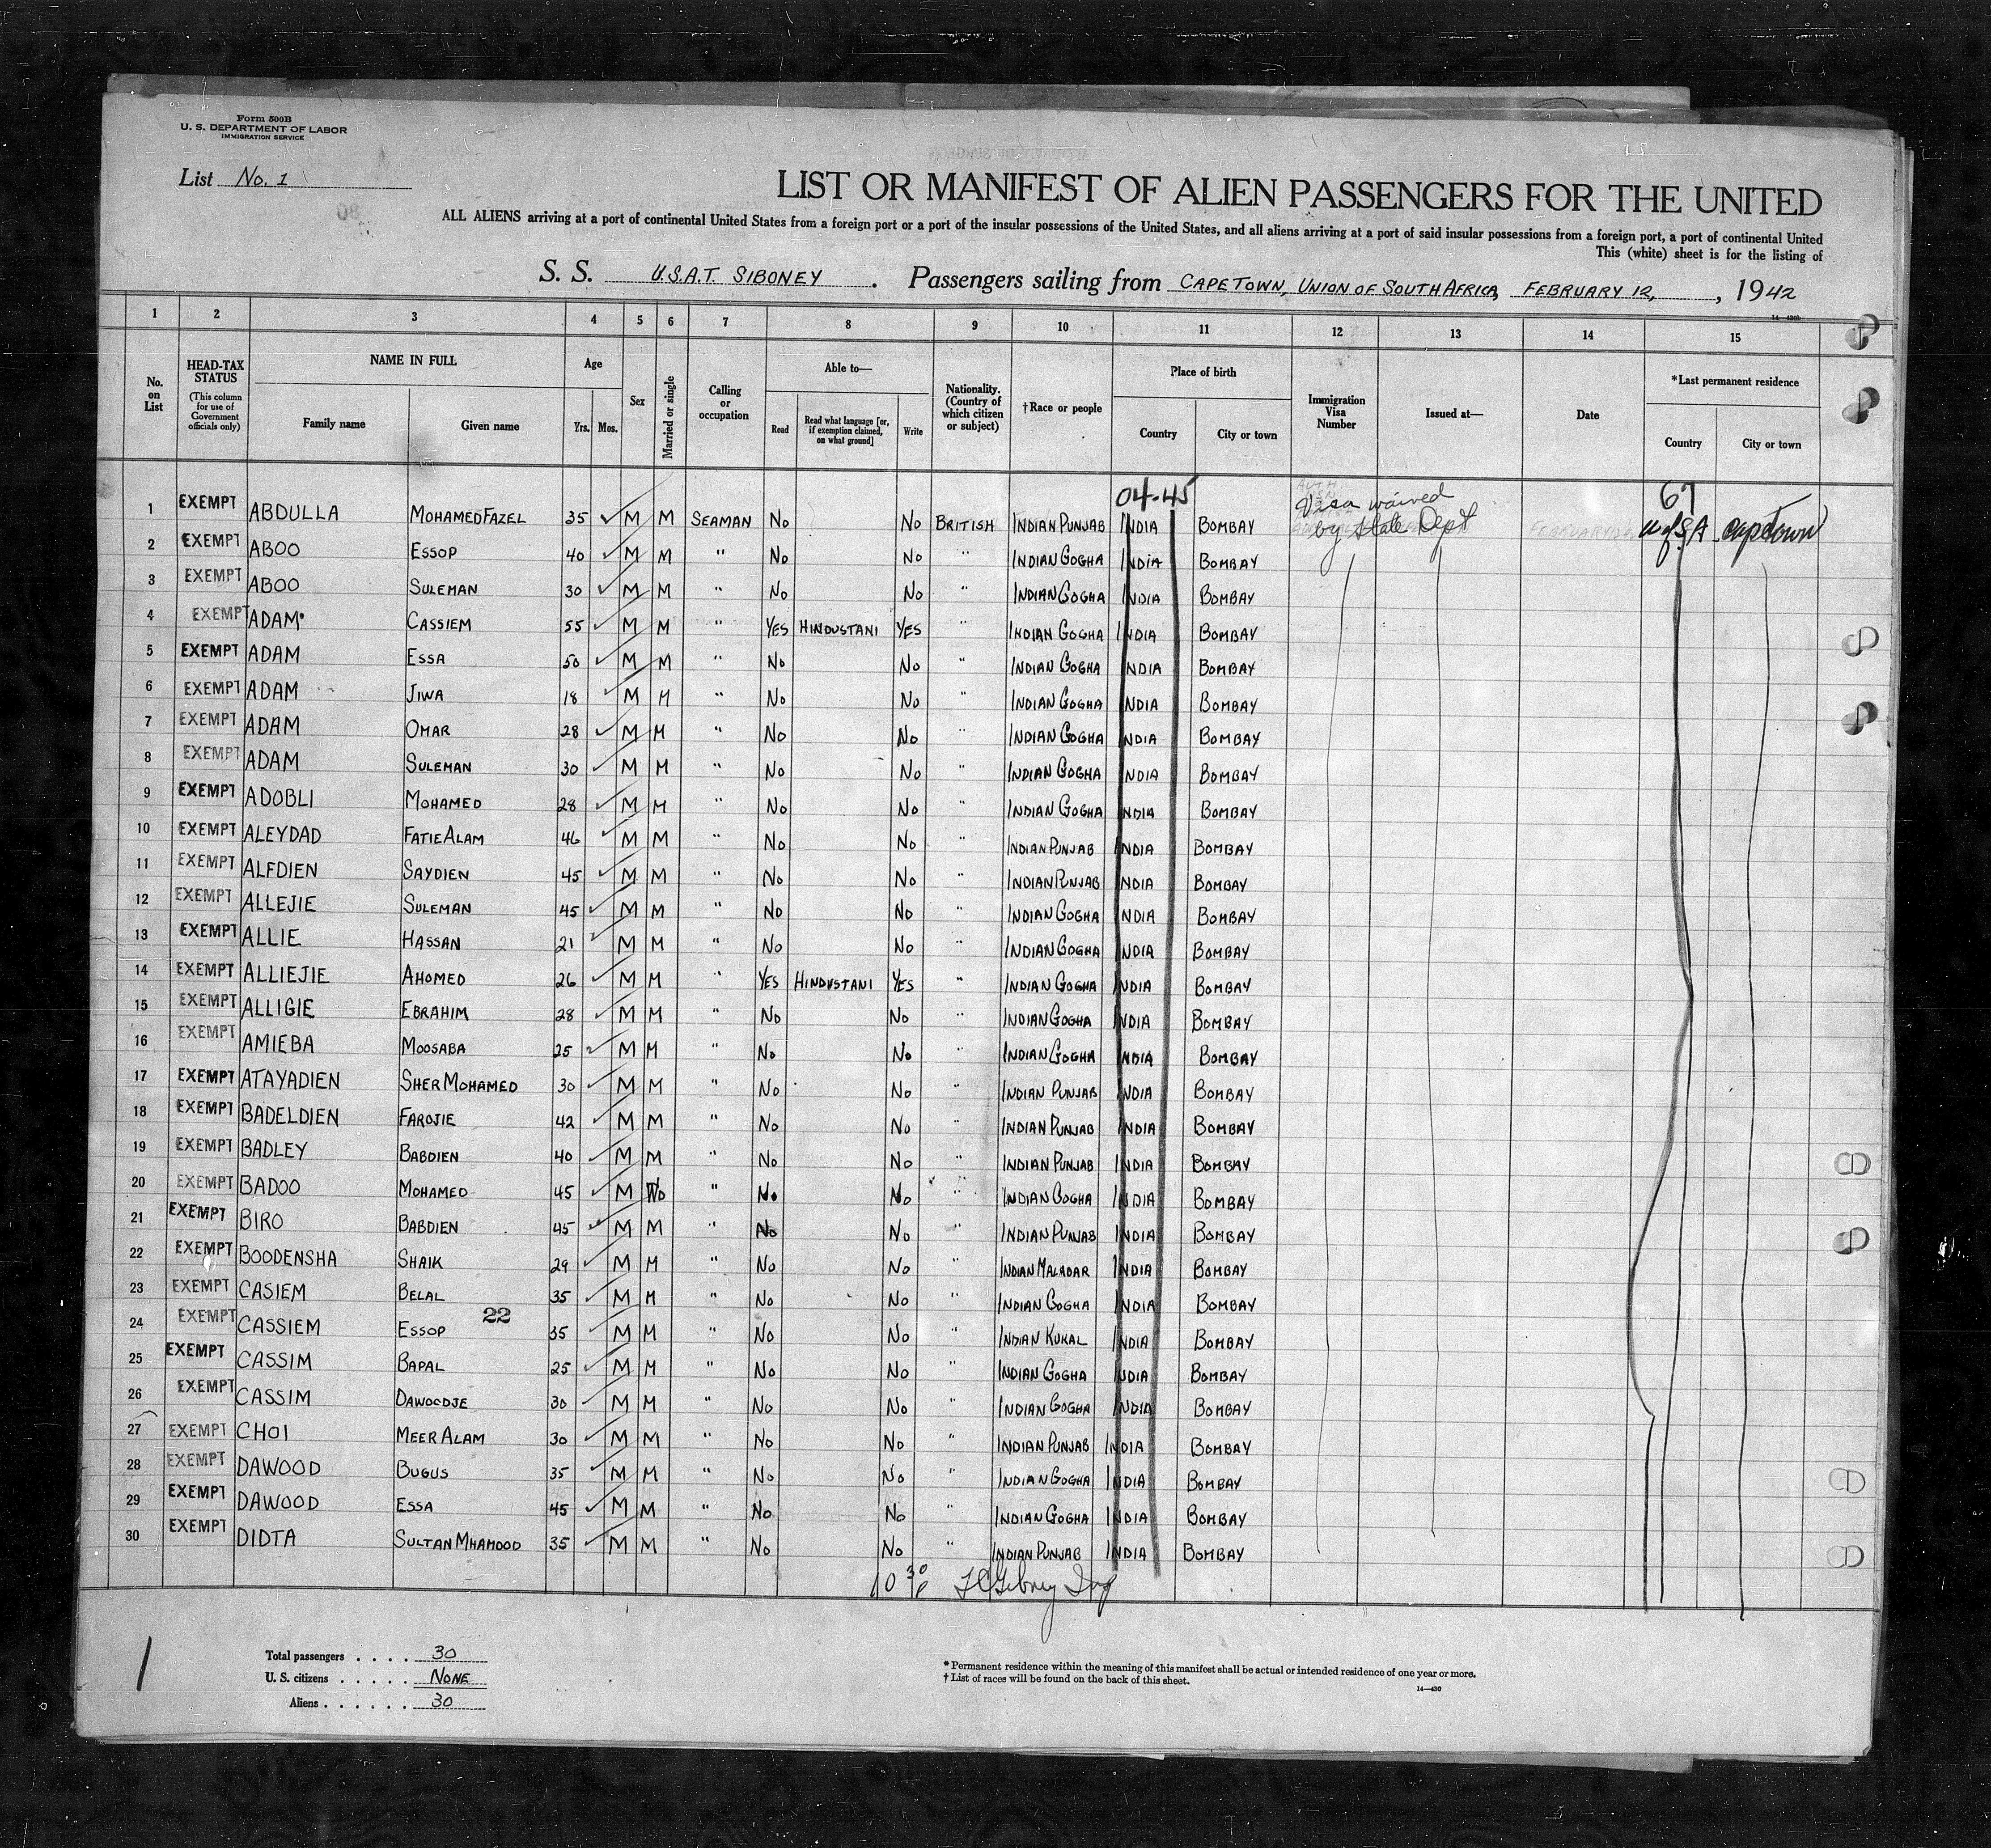 Form 500B
U. S. DEPARTMENT OF LABOR
IMMIGRATION SERVICE
List No. 1
LIST OR MANIFEST OF ALIEN PASSENGERS FOR THE UNITED
ALL ALIENS arriving at a port of continental United States from a foreign port or a port of the insular possessions of the United States, and all aliens arriving at a port of said insular possessions from a foreign port, a port of continental United
This (white) sheet is for the listing of
S. S. U.S.A.T. SIBONEY. Passengers sailing from CAPETOWN, UNION OF SOUTH AFRICA, FEBRUARY 12, , 1942
14—430b
1 2 3 4 5 6 7 8 9 10 11 12 13 14 15
No. on List
HEAD-TAX STATUS (This column for use of Government officials only)
NAME IN FULL
Family name Given name
Age
Yrs. Mos.
Sex
Married or single
Calling or occupation
Able to—
Read
Read what language [or, if exemption claimed, on what ground]
Write
Nationality. (Country of which citizen or subject)
†Race or people
Place of birth
Country City or town
Immigration Visa Number
Issued at—
Date
*Last permanent residence
Country City or town
04-45 Visa waived 67
1 EXEMPT ABDULLA MOHAMED FAZEL 35 M M SEAMAN No No BRITISH INDIAN PUNJAB INDIA BOMBAY by State Dept U of S A Capetown
2 EXEMPT ABOO ESSOP 40 M M " No No " INDIAN GOGHA INDIA BOMBAY
3 EXEMPT ABOO SULEMAN 30 M M " No No " INDIAN GOGHA INDIA BOMBAY
4 EXEMPT ADAM CASSIEM 55 M M " YES HINDUSTANI YES " INDIAN GOGHA INDIA BOMBAY
5 EXEMPT ADAM ESSA 50 M M " No No " INDIAN GOGHA INDIA BOMBAY
6 EXEMPT ADAM JIWA 18 M M " No No " INDIAN GOGHA INDIA BOMBAY
7 EXEMPT ADAM OMAR 28 M M " No No " INDIAN GOGHA INDIA BOMBAY
8 EXEMPT ADAM SULEMAN 30 M M " No No " INDIAN GOGHA INDIA BOMBAY
9 EXEMPT ADOBLI MOHAMED 28 M M " No No " INDIAN GOGHA INDIA BOMBAY
10 EXEMPT ALEYDAD FATIE ALAM 46 M M " No No " INDIAN PUNJAB INDIA BOMBAY
11 EXEMPT ALFDIEN SAYDIEN 45 M M " No No " INDIAN PUNJAB INDIA BOMBAY
12 EXEMPT ALLEJIE SULEMAN 45 M M " No No " INDIAN GOGHA INDIA BOMBAY
13 EXEMPT ALLIE HASSAN 21 M M " No No " INDIAN GOGHA INDIA BOMBAY
14 EXEMPT ALLIEJIE AHOMED 26 M M " YES HINDUSTANI YES " INDIAN GOGHA INDIA BOMBAY
15 EXEMPT ALLIGIE EBRAHIM 28 M M " No No " INDIAN GOGHA INDIA BOMBAY
16 EXEMPT AMIEBA MOOSABA 25 M M " No No " INDIAN GOGHA INDIA BOMBAY
17 EXEMPT ATAYADIEN SHER MOHAMED 30 M M " No No " INDIAN PUNJAB INDIA BOMBAY
18 EXEMPT BADELDIEN FAROJIE 42 M M " No No " INDIAN PUNJAB INDIA BOMBAY
19 EXEMPT BADLEY BABDIEN 40 M M " No No " INDIAN PUNJAB INDIA BOMBAY
20 EXEMPT BADOO MOHAMED 45 M WD " No No " INDIAN GOGHA INDIA BOMBAY
21 EXEMPT BIRO BABDIEN 45 M M " No No " INDIAN PUNJAB INDIA BOMBAY
22 EXEMPT BOODENSHA SHAIK 29 M M " No No " INDIAN MALABAR INDIA BOMBAY
23 EXEMPT CASIEM BELAL 35 M M " No No " INDIAN GOGHA INDIA BOMBAY
24 EXEMPT CASSIEM ESSOP 22 35 M M " No No " INDIAN KUKAL INDIA BOMBAY
25 EXEMPT CASSIM BAPAL 25 M M " No No " INDIAN GOGHA INDIA BOMBAY
26 EXEMPT CASSIM DAWOODJE 30 M M " No No " INDIAN GOGHA INDIA BOMBAY
27 EXEMPT CHOI MEER ALAM 30 M M " No No " INDIAN PUNJAB INDIA BOMBAY
28 EXEMPT DAWOOD BUGUS 35 M M " No No " INDIAN GOGHA INDIA BOMBAY
29 EXEMPT DAWOOD ESSA 45 M M " No No " INDIAN GOGHA INDIA BOMBAY
30 EXEMPT DIDTA SULTAN MHAMOOD 35 M M " No No " INDIAN PUNJAB INDIA BOMBAY
10 30
1
Total passengers . . . . . 30
U. S. citizens . . . . . NONE
Aliens . . . . . . 30
* Permanent residence within the meaning of this manifest shall be actual or intended residence of one year or more.
† List of races will be found on the back of this sheet.
14—430